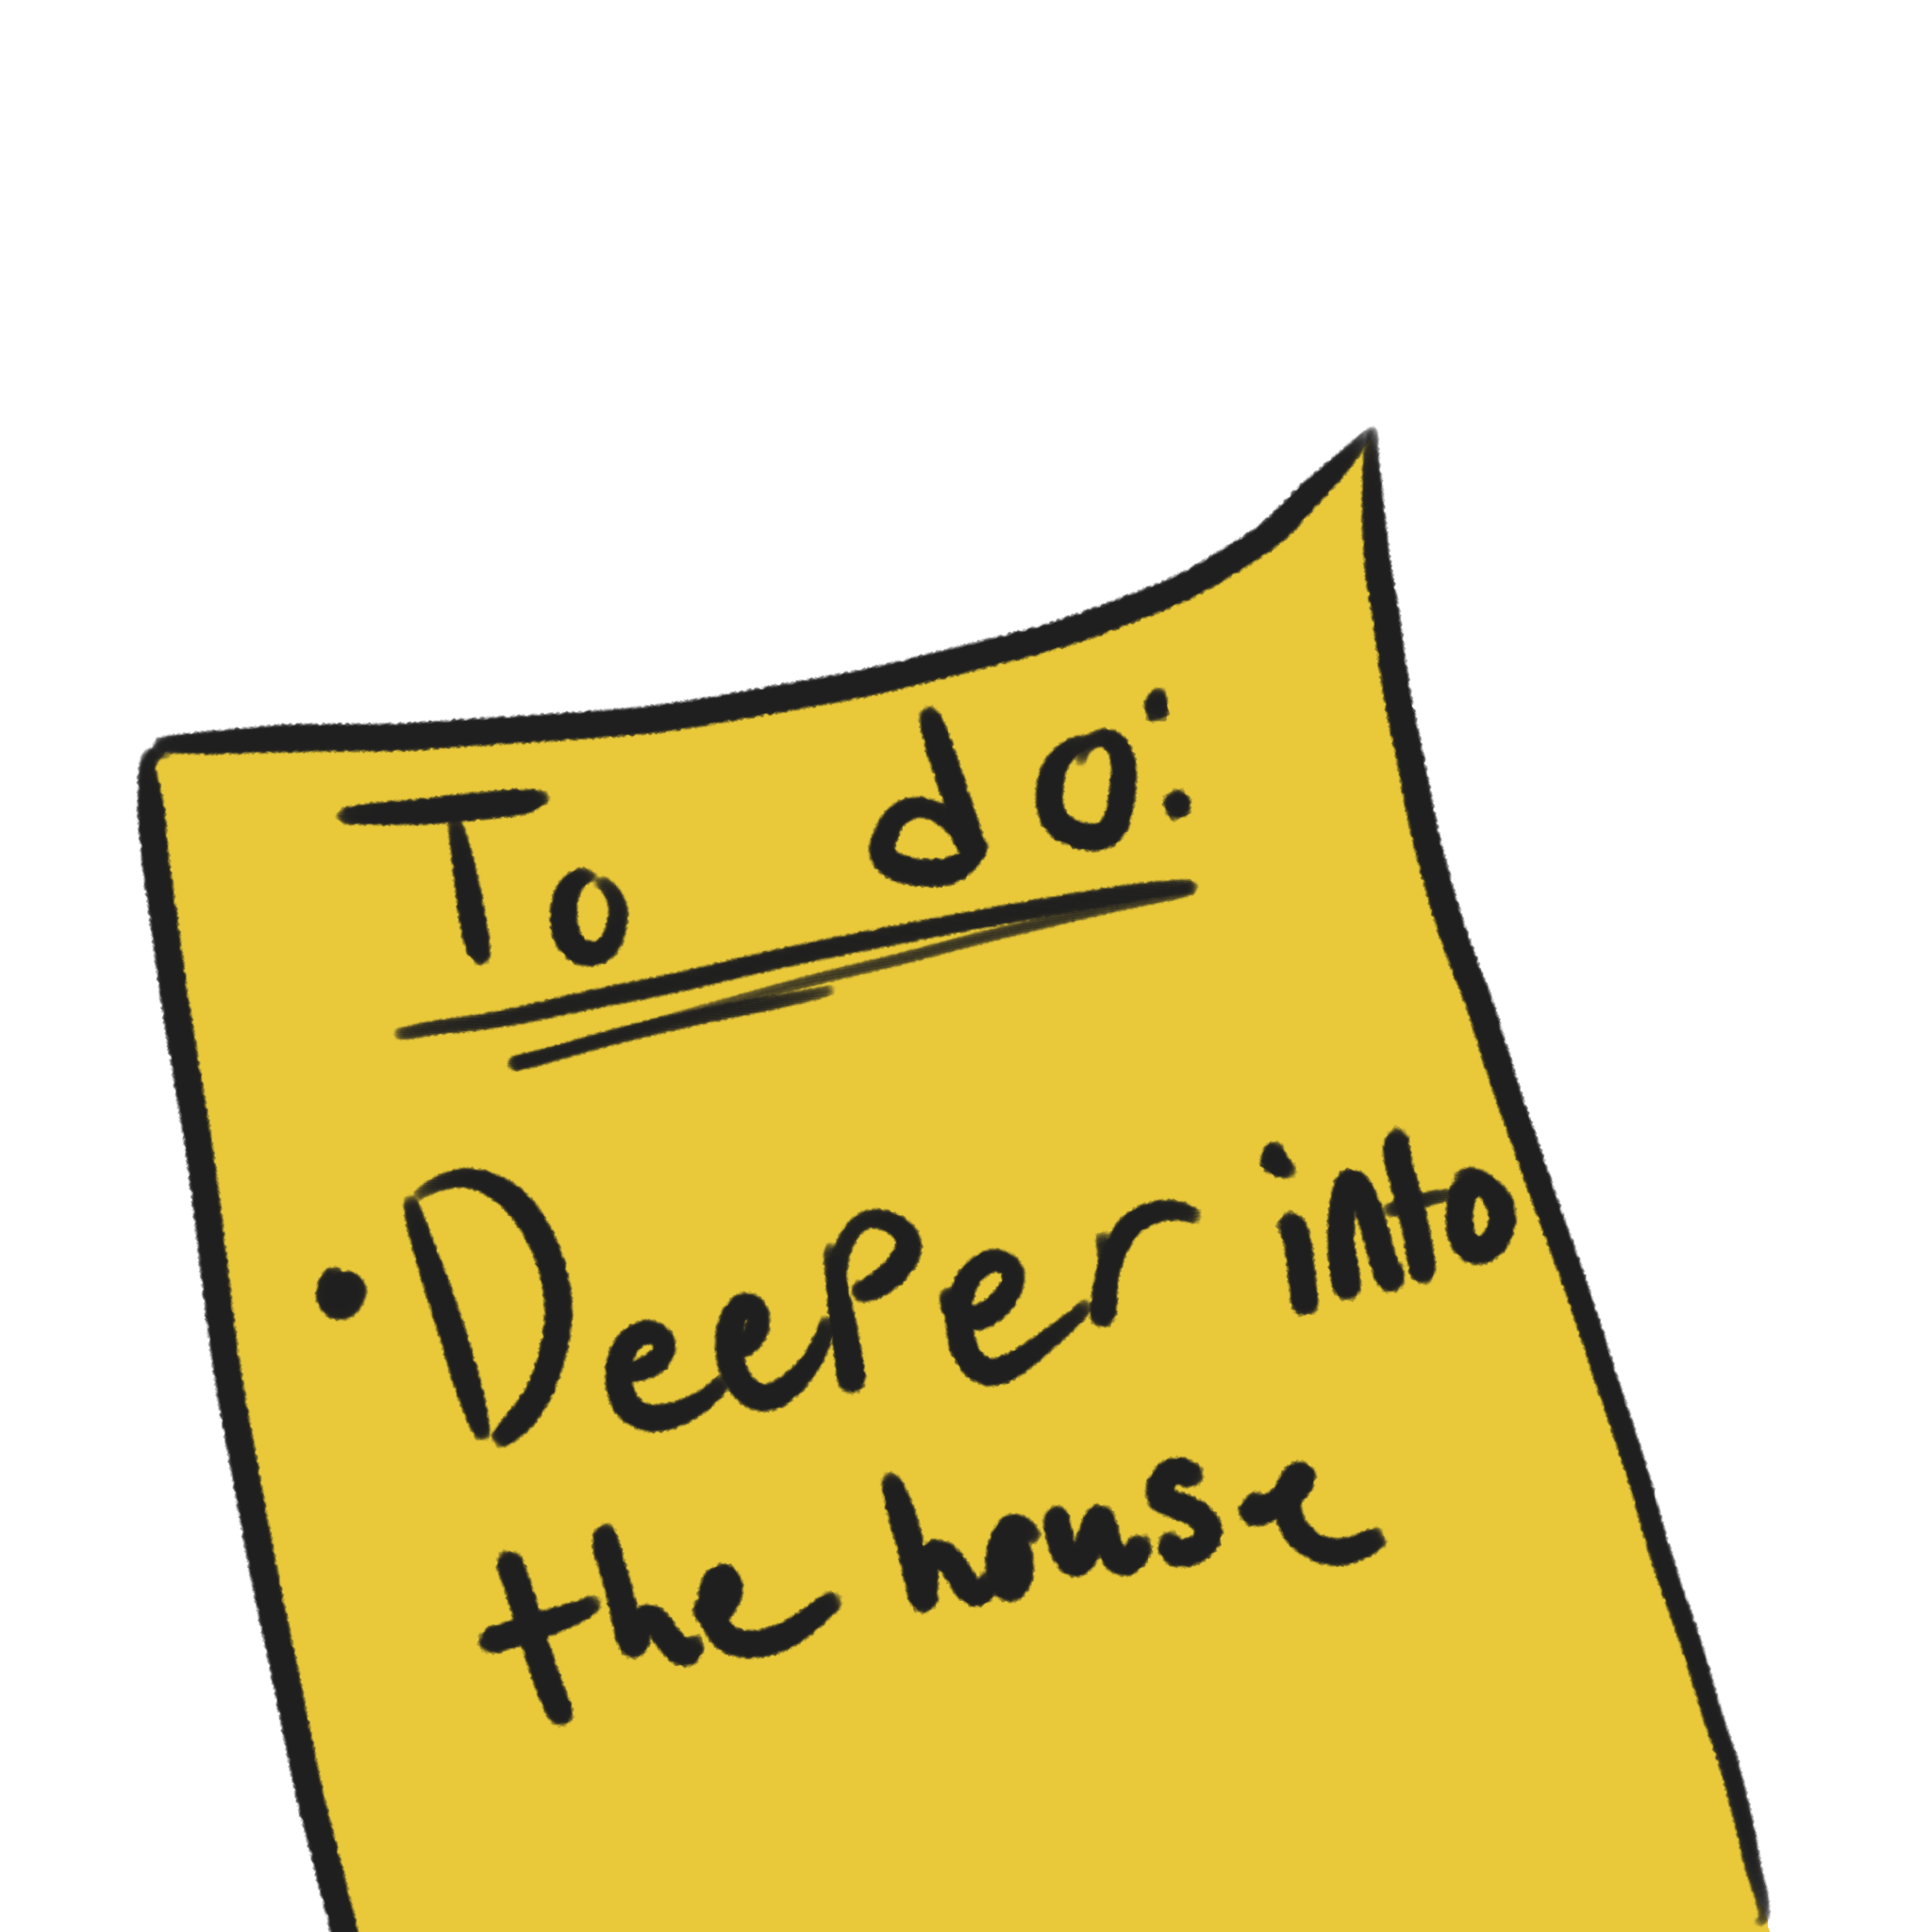 To do:
• Deeper into
the house